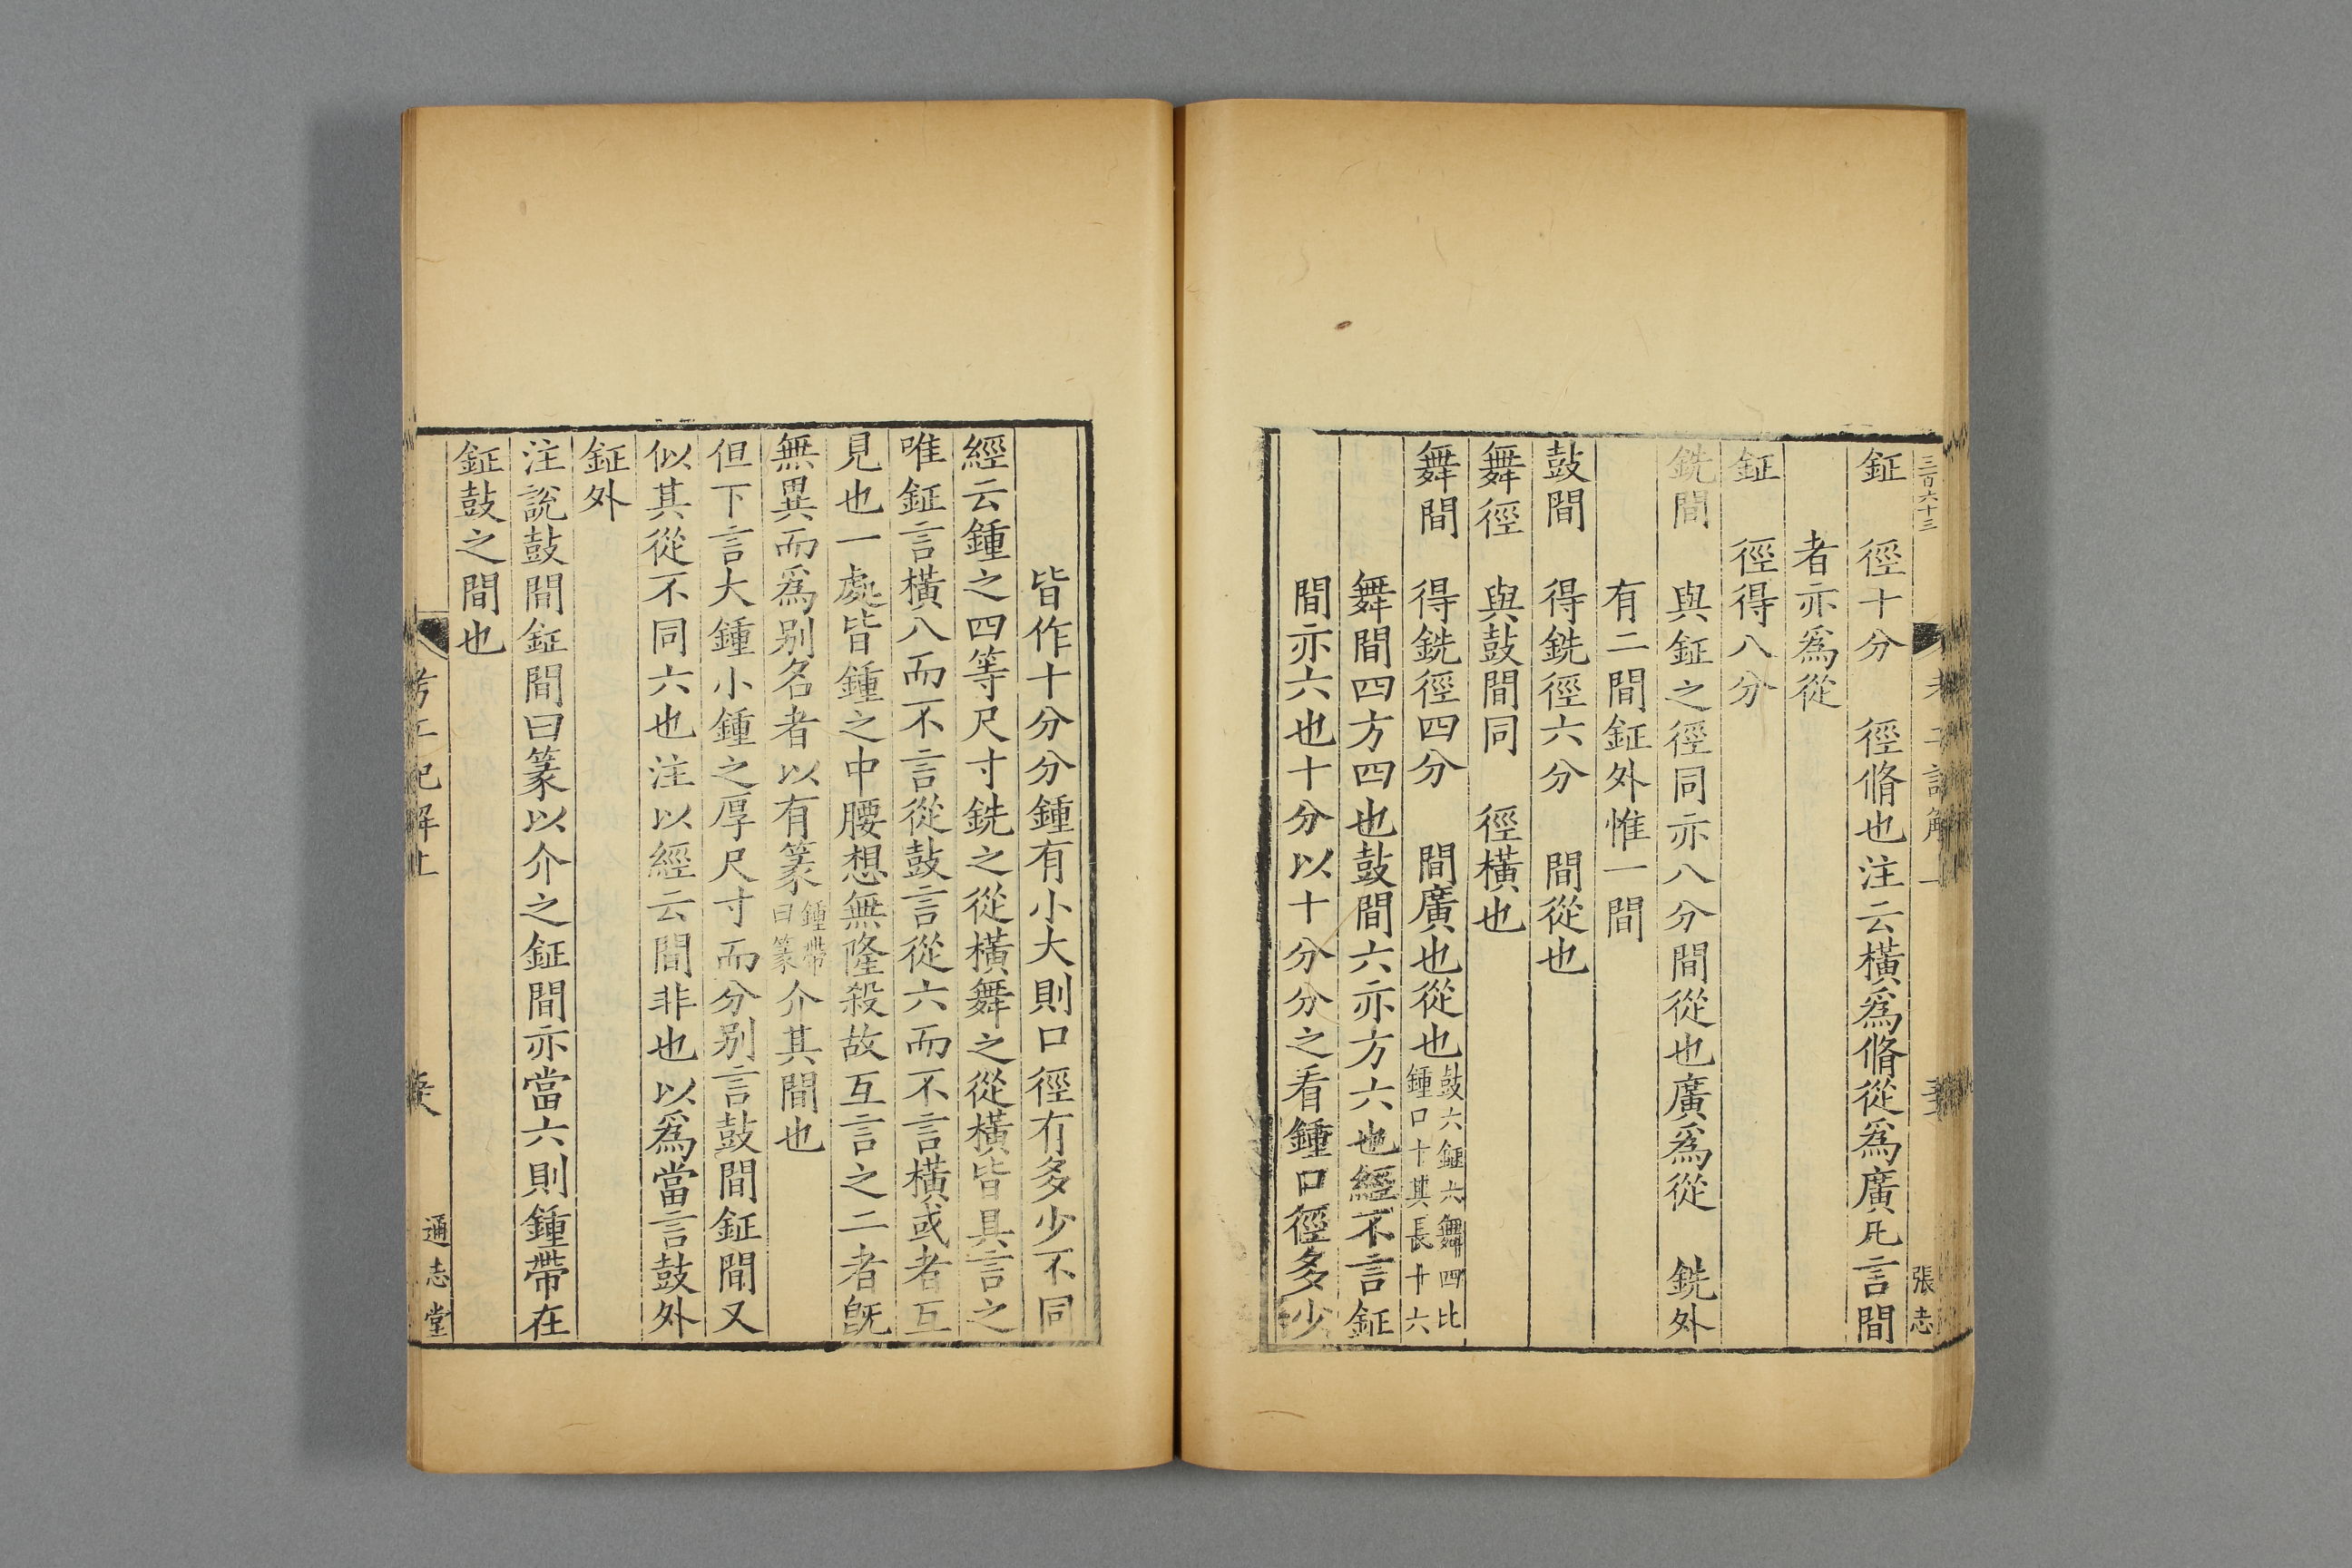 三百六十三
張志
鉦 徑十分 徑脩也注云橫爲脩從爲廣凡言間
者亦爲從
鉦 徑得八分
銑間 與鉦之徑同亦八分間從也廣爲從 銑外
有二間鉦外惟一間
鼓間 得銑徑六分 間從也
舞徑 與鼓間同 徑橫也
舞間 得銑徑四分 間廣也從也鼓六鉦六舞四比鍾口十其長十六
舞間四方四也鼓間六亦方六也經不言鉦
間亦六也十分以十分分之看鍾口徑多少
皆作十分分鍾有小大則口徑有多少不同
經云鍾之四等尺寸銑之從橫舞之從橫皆具言之
唯鉦言橫八而不言從鼓言從六而不言橫或者互
見也一處皆鍾之中腰想無隆殺故互言之二者旣
無異而爲別名者以有篆鍾帶曰篆介其間也
但下言大鍾小鍾之厚尺寸而分別言鼓間鉦間又
似其從不同六也注以經云間非也以爲當言鼓外
鉦外
注說鼓間鉦間曰篆以介之鉦間亦當六則鍾帶在
鉦鼓之間也
考工記解上
通志堂